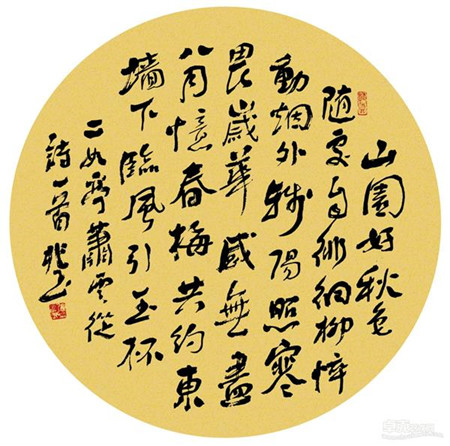 山園好秋色
随處自徘徊柳悴
動烟外残陽照寒
畏歲華感無盡
八月憶春梅共約東
墻下臨風引玉杯
蕭雲從
詩一首